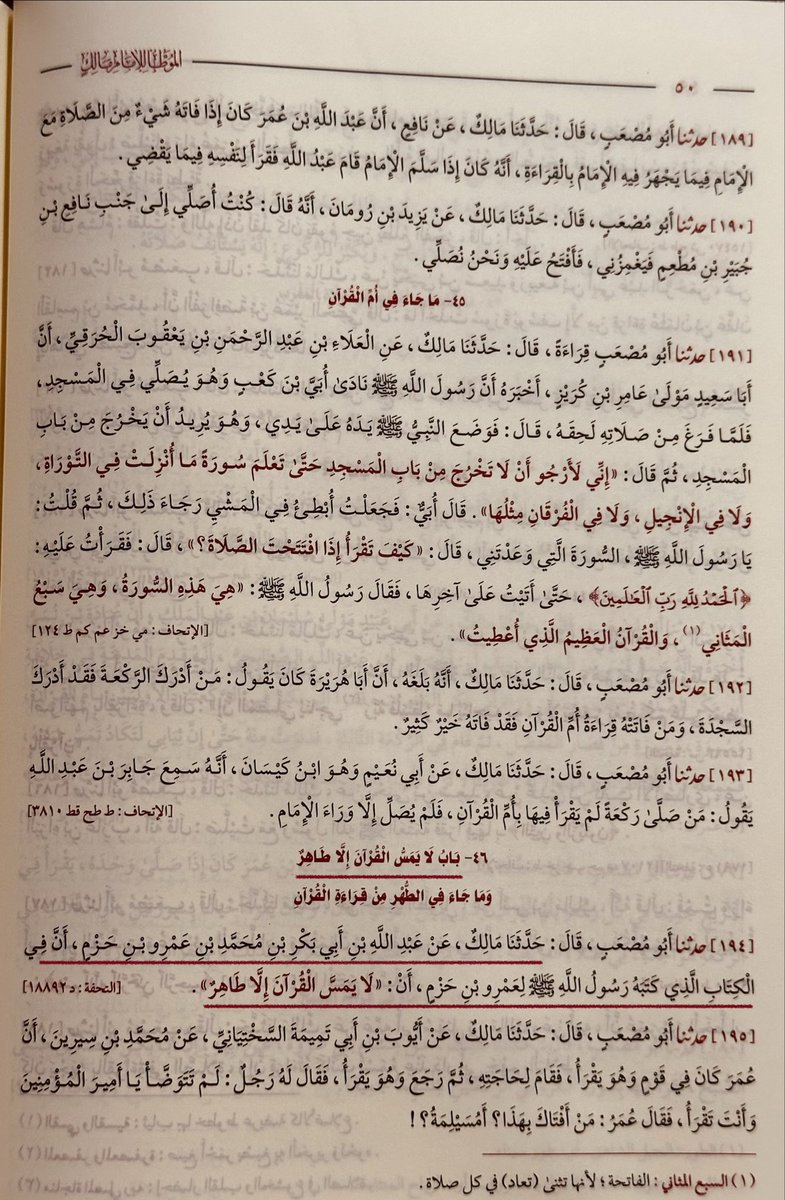 الموطأ للإمام مالك
٥٠
[١٨٩] حدثنا أَبُو مُصْعَبٍ ، قَالَ : حَدَّثَنَا مَالِكٌ ، عَنْ نَافِعٍ ، أَنَّ عَبْدَ اللَّهِ بْنَ عُمَرَ كَانَ إِذَا فَاتَهُ شَيْءٌ مِنَ الصَّلَاةِ مَعَ
الْإِمَامِ فِيمَا يَجْهَرُ فِيهِ الْإِمَامُ بِالْقِرَاءَةِ ، أَنَّهُ كَانَ إِذَا سَلَّمَ الْإِمَامُ قَامَ عَبْدُ اللَّهِ فَقَرَأَ لِنَفْسِهِ فِيمَا يَقْضِي .
[١٩٠] حدثنا أَبُو مُصْعَبٍ ، قَالَ : حَدَّثَنَا مَالِكٌ ، عَنْ يَزِيدَ بْنِ رُومَانَ ، أَنَّهُ قَالَ : كُنْتُ أُصَلِّي إِلَىٰ جَنْبِ نَافِعِ بْنِ
جُبَيْرِ بْنِ مُطْعِمٍ فَيَغْمِزُنِي ، فَأَفْتَحُ عَلَيْهِ وَنَحْنُ نُصَلِّي .
٤٥- مَا جَاءَ فِي أُمِّ الْقُرْآنِ
[١٩١] حدثنا أَبُو مُصْعَبٍ قِرَاءَةً ، قَالَ : حَدَّثَنَا مَالِكٌ ، عَنِ الْعَلَاءِ بْنِ عَبْدِ الرَّحْمَنِ بْنِ يَعْقُوبَ الْحُرَقِيِّ ، أَنَّ
أَبَا سَعِيدٍ مَوْلَىٰ عَامِرِ بْنِ كُرَيْزٍ ، أَخْبَرَهُ أَنَّ رَسُولَ اللَّهِ ﷺ نَادَىٰ أُبَيَّ بْنَ كَعْبٍ وَهُوَ يُصَلِّي فِي الْمَسْجِدِ ،
فَلَمَّا فَرَغَ مِنْ صَلَاتِهِ لَحِقَهُ ، قَالَ : فَوَضَعَ النَّبِيُّ ﷺ يَدَهُ عَلَىٰ يَدِي ، وَهُوَ يُرِيدُ أَنْ يَخْرُجَ مِنْ بَابِ
الْمَسْجِدِ ، ثُمَّ قَالَ : «إِنِّي لَأَرْجُو أَنْ لَا تَخْرُجَ مِنْ بَابِ الْمَسْجِدِ حَتَّىٰ تَعْلَمَ سُورَةً مَا أُنْزِلَتْ فِي التَّوْرَاةِ ،
وَلَا فِي الْإِنْجِيلِ ، وَلَا فِي الْفُرْقَانِ مِثْلُهَا» . قَالَ أُبَيٌّ : فَجَعَلْتُ أُبْطِئُ فِي الْمَشْيِ رَجَاءَ ذَلِكَ ، ثُمَّ قُلْتُ :
يَا رَسُولَ اللَّهِ ﷺ ، السُّورَةَ الَّتِي وَعَدْتَنِي ، قَالَ : «كَيْفَ تَقْرَأُ إِذَا افْتَتَحْتَ الصَّلَاةَ؟» ، قَالَ : فَقَرَأْتُ عَلَيْهِ :
﴿ٱلْحَمْدُ لِلَّهِ رَبِّ ٱلْعَـٰلَمِينَ﴾ ، حَتَّىٰ أَتَيْتُ عَلَىٰ آخِرِهَا ، فَقَالَ رَسُولُ اللَّهِ ﷺ : «هِيَ هَذِهِ السُّورَةُ ، وَهِيَ سَبْعُ
الْمَثَانِي(١) ، وَالْقُرْآنُ الْعَظِيمُ الَّذِي أُعْطِيتُ» . [الإتحاف : مي خز عم كم ط ١٢٤]
[١٩٢] حدثنا أَبُو مُصْعَبٍ ، قَالَ : حَدَّثَنَا مَالِكٌ ، أَنَّهُ بَلَغَهُ ، أَنَّ أَبَا هُرَيْرَةَ كَانَ يَقُولُ : مَنْ أَدْرَكَ الرَّكْعَةَ فَقَدْ أَدْرَكَ
السَّجْدَةَ ، وَمَنْ فَاتَتْهُ قِرَاءَةُ أُمِّ الْقُرْآنِ فَقَدْ فَاتَهُ خَيْرٌ كَثِيرٌ .
[١٩٣] حدثنا أَبُو مُصْعَبٍ ، قَالَ : حَدَّثَنَا مَالِكٌ ، عَنْ أَبِي نُعَيْمٍ وَهُوَ ابْنُ كَيْسَانَ ، أَنَّهُ سَمِعَ جَابِرَ بْنَ عَبْدِ اللَّهِ
يَقُولُ : مَنْ صَلَّىٰ رَكْعَةً لَمْ يَقْرَأْ فِيهَا بِأُمِّ الْقُرْآنِ ، فَلَمْ يُصَلِّ إِلَّا وَرَاءَ الْإِمَامِ . [الإتحاف : ط طح قط ٣٨١٠]
٤٦- بَابُ لَا يَمَسُّ الْقُرْآنَ إِلَّا طَاهِرٌ
وَمَا جَاءَ فِي الطُّهْرِ مِنْ قِرَاءَةِ الْقُرْآنِ
[١٩٤] حدثنا أَبُو مُصْعَبٍ ، قَالَ : حَدَّثَنَا مَالِكٌ ، عَنْ عَبْدِ اللَّهِ بْنِ أَبِي بَكْرِ بْنِ مُحَمَّدِ بْنِ عَمْرِو بْنِ حَزْمٍ ، أَنَّ فِي
الْكِتَابِ الَّذِي كَتَبَهُ رَسُولُ اللَّهِ ﷺ لِعَمْرِو بْنِ حَزْمٍ ، أَنْ : «لَا يَمَسَّ الْقُرْآنَ إِلَّا طَاهِرٌ» . [التحفة : د ١٨٨٩٢]
[١٩٥] حدثنا أَبُو مُصْعَبٍ ، قَالَ : حَدَّثَنَا مَالِكٌ ، عَنْ أَيُّوبَ بْنِ أَبِي تَمِيمَةَ السَّخْتِيَانِيِّ ، عَنْ مُحَمَّدِ بْنِ سِيرِينَ ، أَنَّ
عُمَرَ كَانَ فِي قَوْمٍ وَهُوَ يَقْرَأُ ، فَقَامَ لِحَاجَتِهِ ، ثُمَّ رَجَعَ وَهُوَ يَقْرَأُ ، فَقَالَ لَهُ رَجُلٌ : لَمْ تَتَوَضَّأْ يَا أَمِيرَ الْمُؤْمِنِينَ
وَأَنْتَ تَقْرَأُ ، فَقَالَ عُمَرُ : مَنْ أَفْتَاكَ بِهَذَا؟ أَمُسَيْلِمَةُ؟ !
(١) السبع المثاني : الفاتحة ؛ لأنها تثنى (تعاد) في كل صلاة .